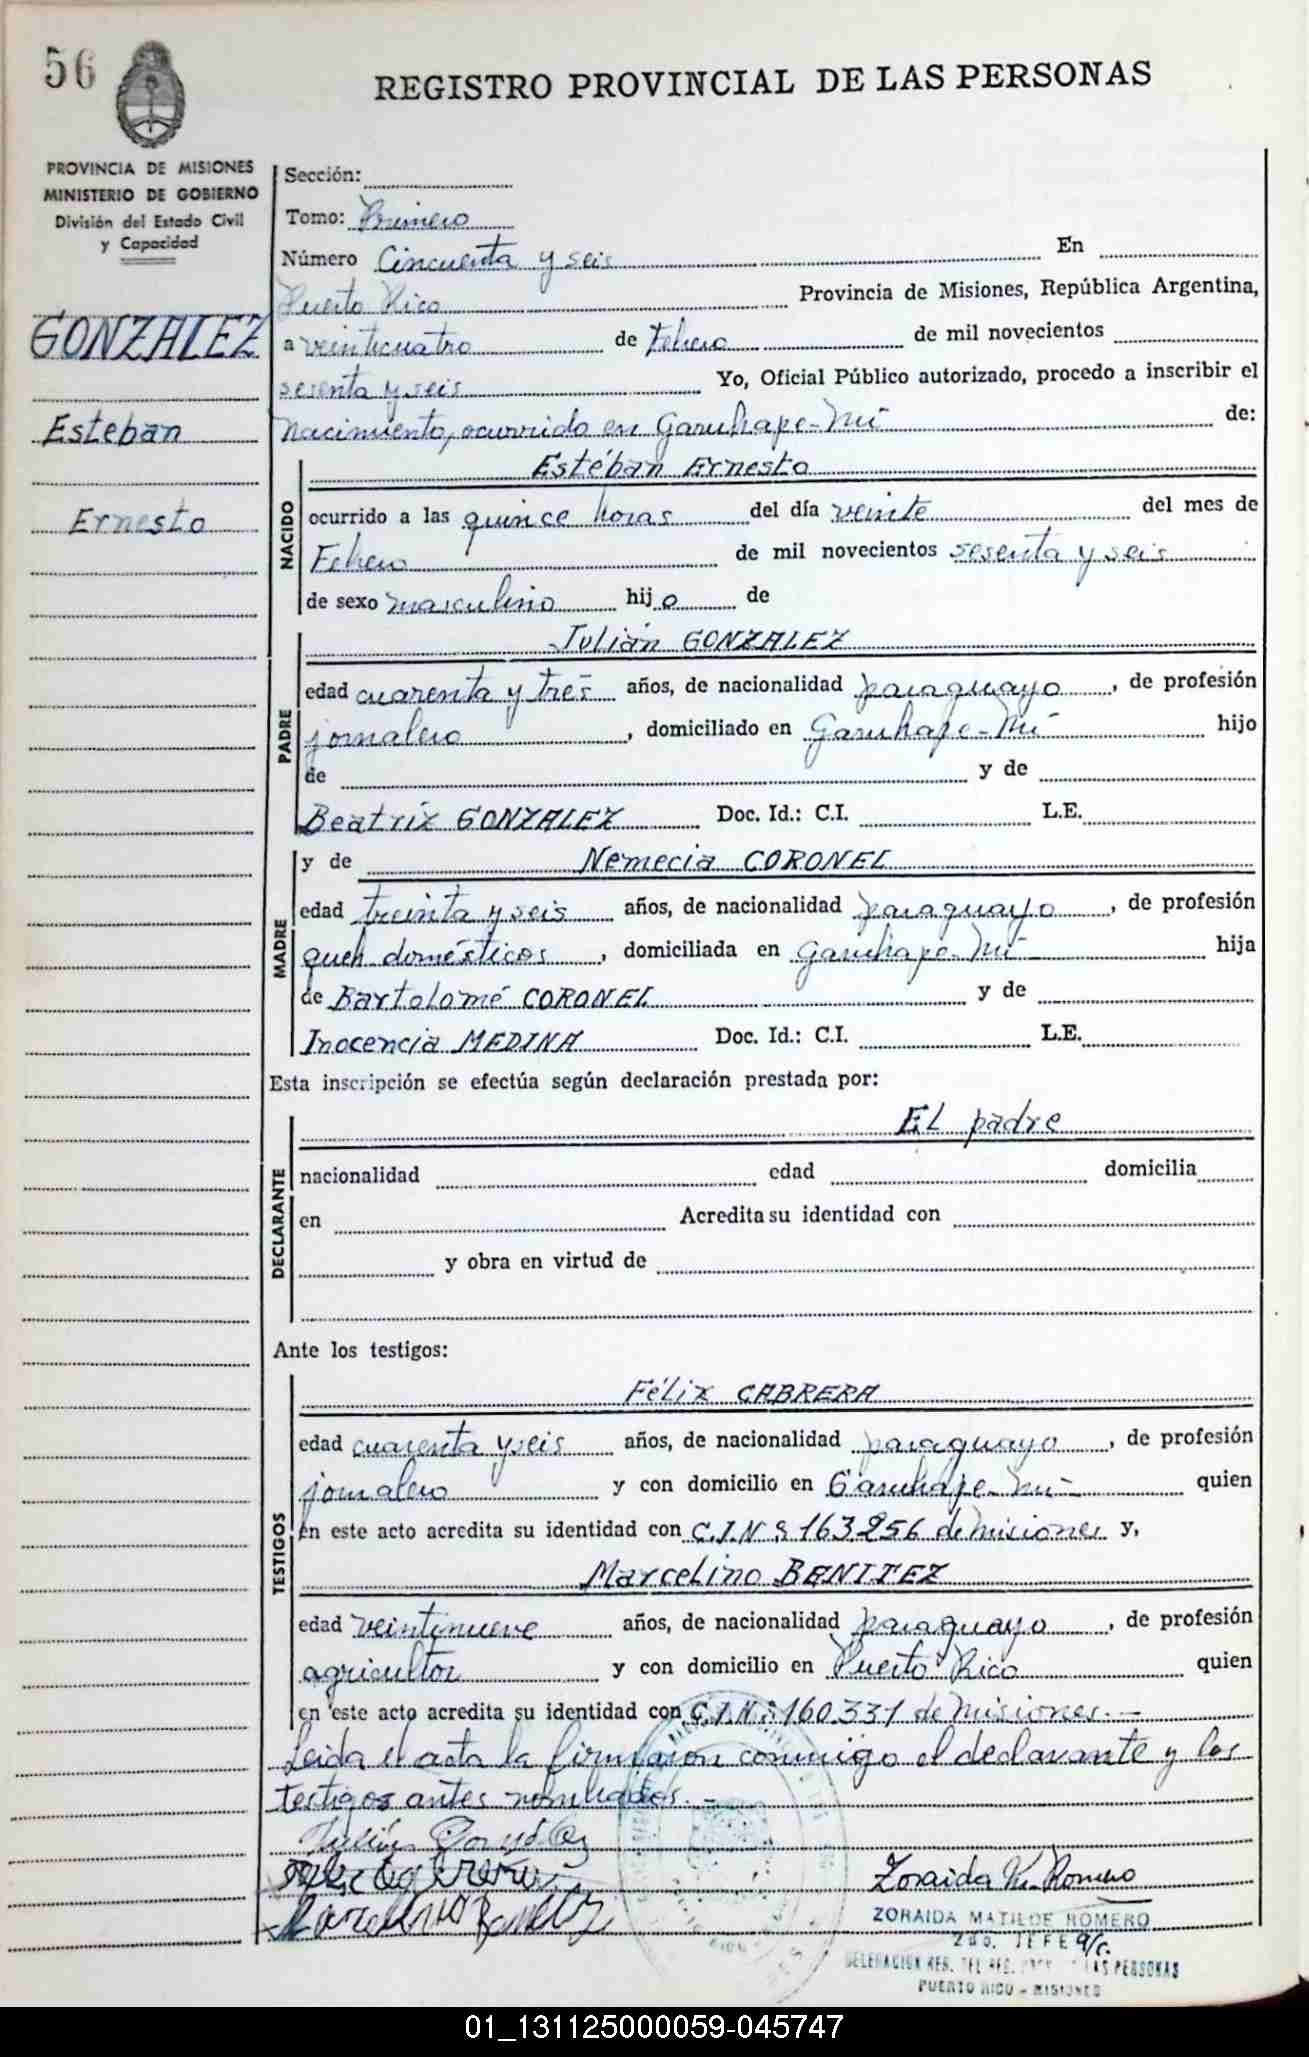 56
REGISTRO PROVINCIAL DE LAS PERSONAS
PROVINCIA DE MISIONES
MINISTERIO DE GOBIERNO
División del Estado Civil
y Capacidad
GONZALEZ
Esteban
Ernesto
Sección:
Tomo: Primero
Número Cincuenta y seis En
Puerto Rico Provincia de Misiones, República Argentina,
a veinticuatro de Febrero de mil novecientos
sesenta y seis Yo, Oficial Público autorizado, procedo a inscribir el
Nacimiento, ocurrido en Garuhape-Mí de:
NACIDO
Estéban Ernesto
ocurrido a las quince horas del día veinte del mes de
Febrero de mil novecientos sesenta y seis
de sexo masculino hijo de
PADRE
Julián GONZALEZ
edad cuarenta y tres años, de nacionalidad paraguayo, de profesión
jornalero, domiciliado en Garuhape-Mí hijo
de y de
Beatríz GONZALEZ Doc. Id.: C.I. L.E.
MADRE
y de Nemecia CORONEL
edad treinta y seis años, de nacionalidad paraguayo, de profesión
queh domésticos, domiciliada en Garuhape-Mí hija
de Bartolomé CORONEL y de
Inocencia MEDINA Doc. Id.: C.I. L.E.
Esta inscripción se efectúa según declaración prestada por:
DECLARANTE
El padre
nacionalidad edad domicilia
en Acredita su identidad con
y obra en virtud de
Ante los testigos:
TESTIGOS
Félix CABRERA
edad cuarenta y seis años, de nacionalidad paraguayo, de profesión
jornalero y con domicilio en Garuhape-Mí quien
en este acto acredita su identidad con C.I.Nº 163.256 de Misiones y,
Marcelino BENITEZ
edad veintinueve años, de nacionalidad paraguayo, de profesión
agricultor y con domicilio en Puerto Rico quien
en este acto acredita su identidad con C.I.Nº 160.331 de Misiones.-
Leida el acta la firmaron conmigo el declarante y los
testigos antes nombrados.-
Julián González
Marcelino Benitez
Zoraida M. Romero
ZORAIDA MATILDE ROMERO
2do. JEFE a/c.
DELEGACION REG. DEL REG. LAS PERSONAS
PUERTO RICO - MISIONES
01_131125000059-045747